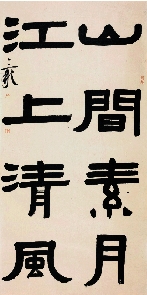 山間素月
江上清風